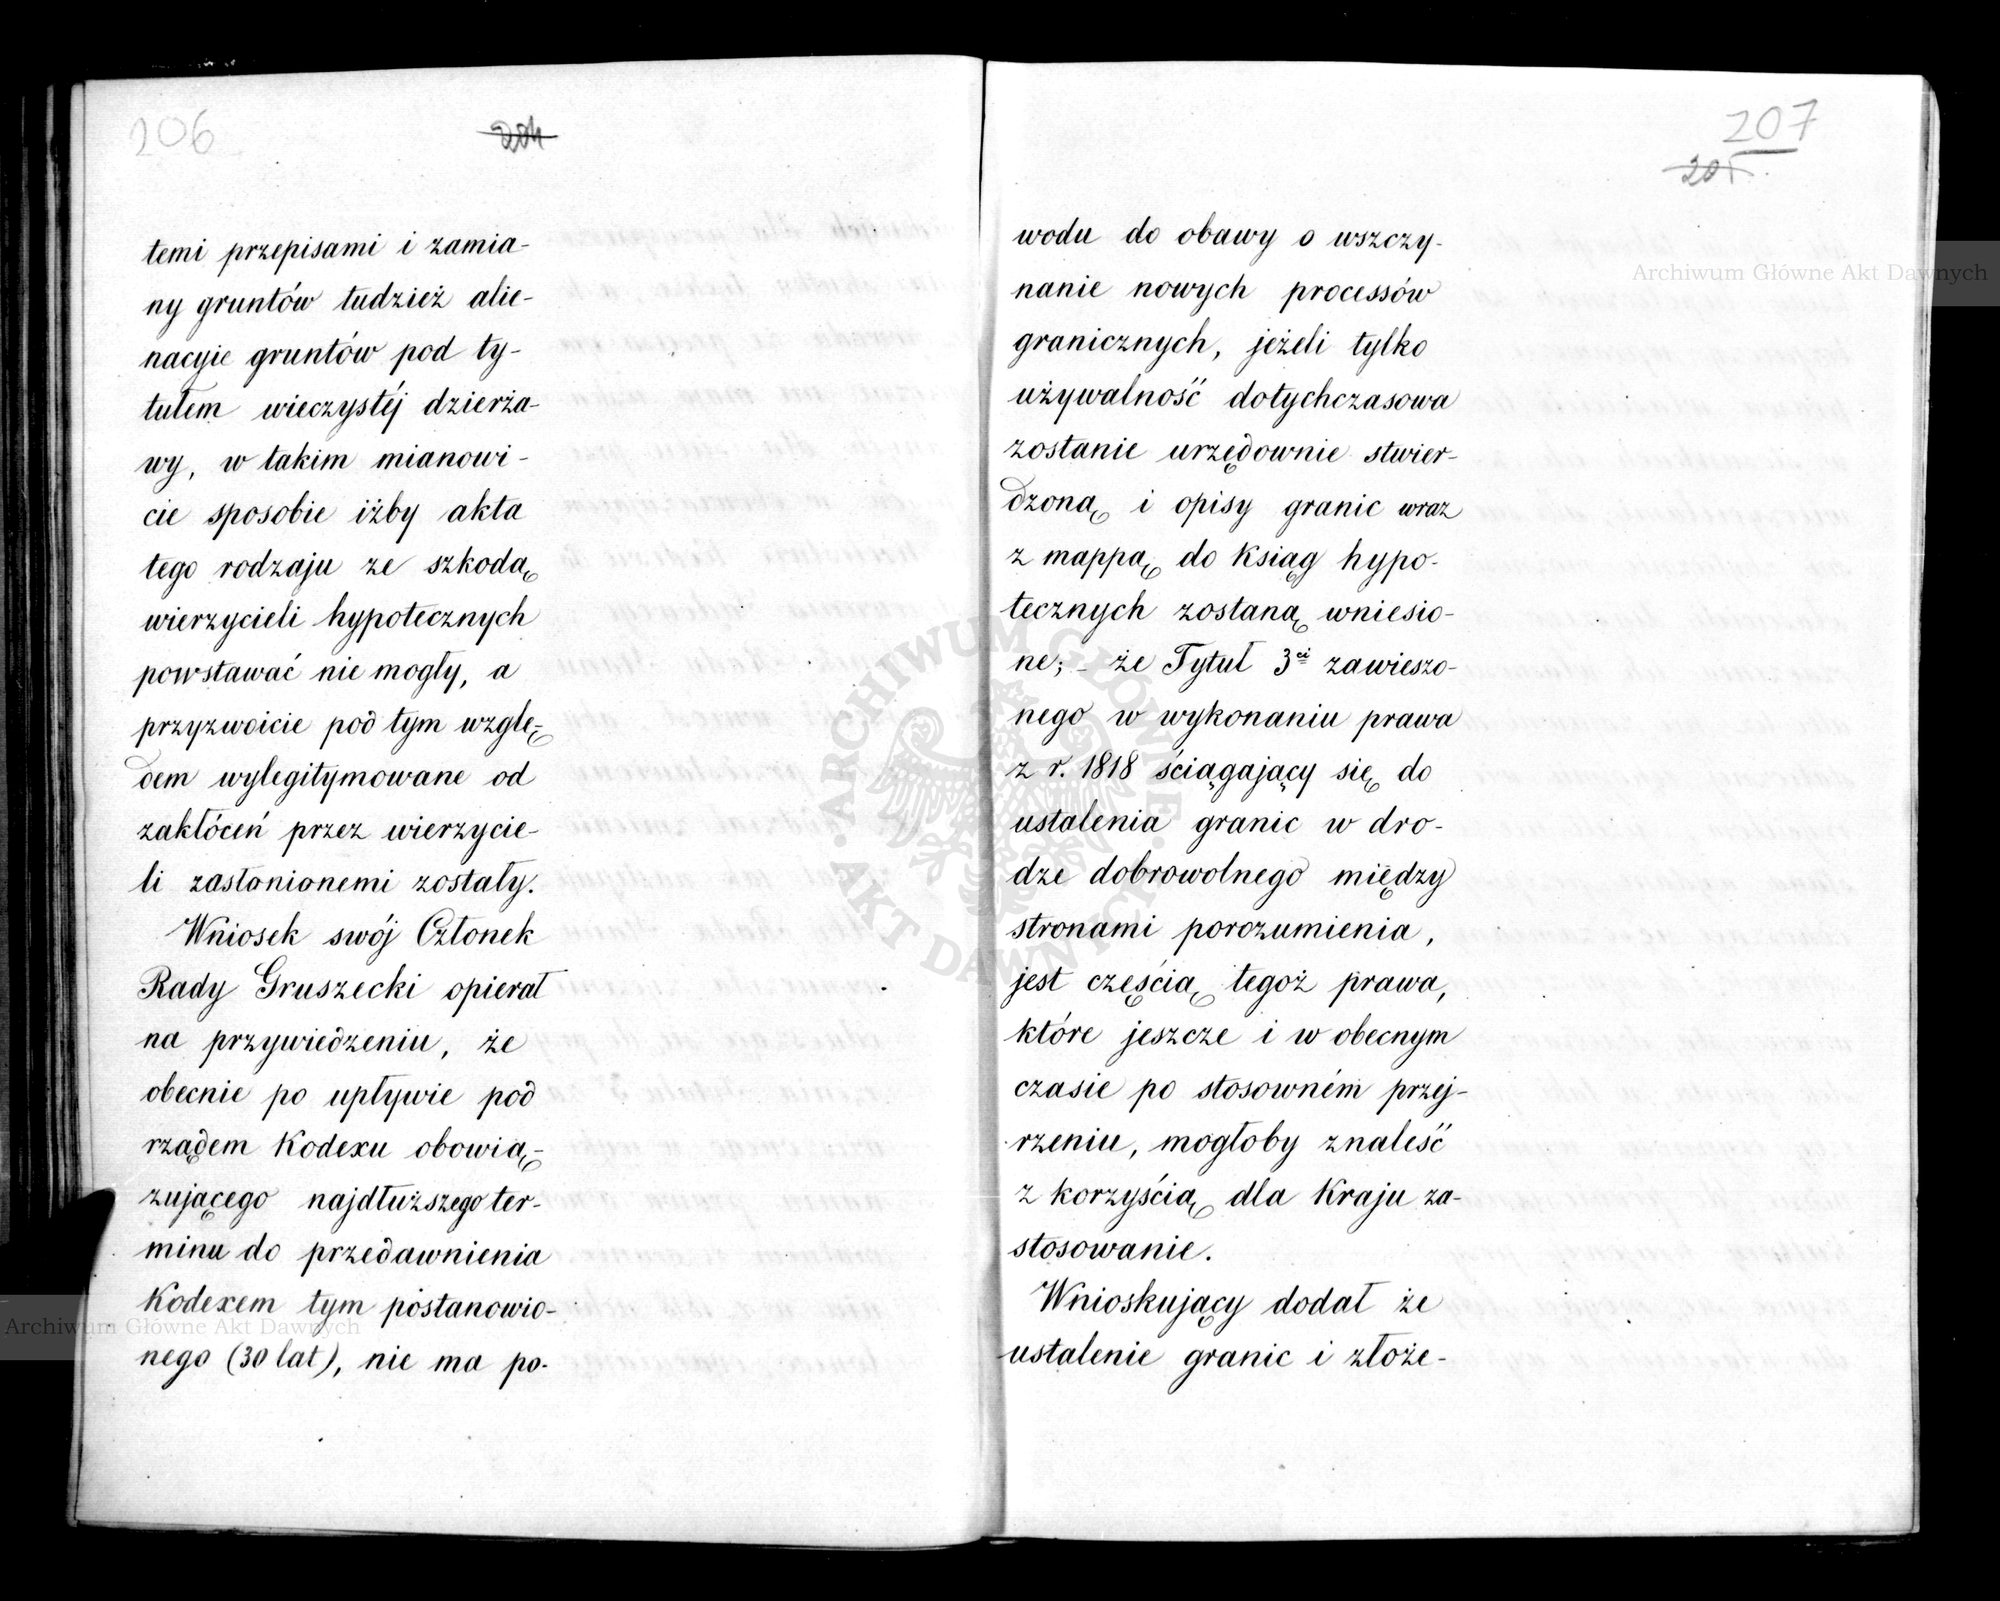 206
204
temi przepisami i zamia-
ny gruntów tudzież alie-
nacyie gruntów pod ty-
tułem wieczystéj dzierża-
wy, w takim mianowi-
cie sposobie iżby akta
tego rodzaju ze szkodą
wierzycieli hypotecznych
powstawać nie mogły, a
przyzwoicie pod tym wzglę-
dem wylegitymowane od
zakłóceń przez wierzycie-
li zasłonionemi zostały.
Wniosek swój Członek
Rady Gruszecki opierał
na przywiedzeniu, że
obecnie po upływie pod
rządem Kodexu obowią-
zującego najdłuższego ter-
minu do przedawnienia
Kodexem tym postanowio-
nego (30 lat), nie ma po-
207
205.
wodu do obawy o wszczy-
nanie nowych processów
granicznych, jeżeli tylko
używalność dotychczasowa
zostanie urzędownie stwier-
dzoną i opisy granic wraz
z mappą do Ksiąg hypo-
tecznych zostaną wniesio-
ne; – że Tytuł 3ci zawieszo-
nego w wykonaniu prawa
z r. 1818 ściągający się do
ustalenia granic w dro-
dze dobrowolnego między
stronami porozumienia,
jest częścią tegoż prawa,
które jeszcze i w obecnym
czasie po stosowném przej-
rzeniu, mogłoby znaleść
z korzyścią dla Kraju za-
stosowanie.
Wnioskujący dodał że
ustalenie granic i złoże-
Archiwum Główne Akt Dawnych
Archiwum Główne Akt Dawnych
ARCHIWUM GŁÓWNE AKT DAWNYCH